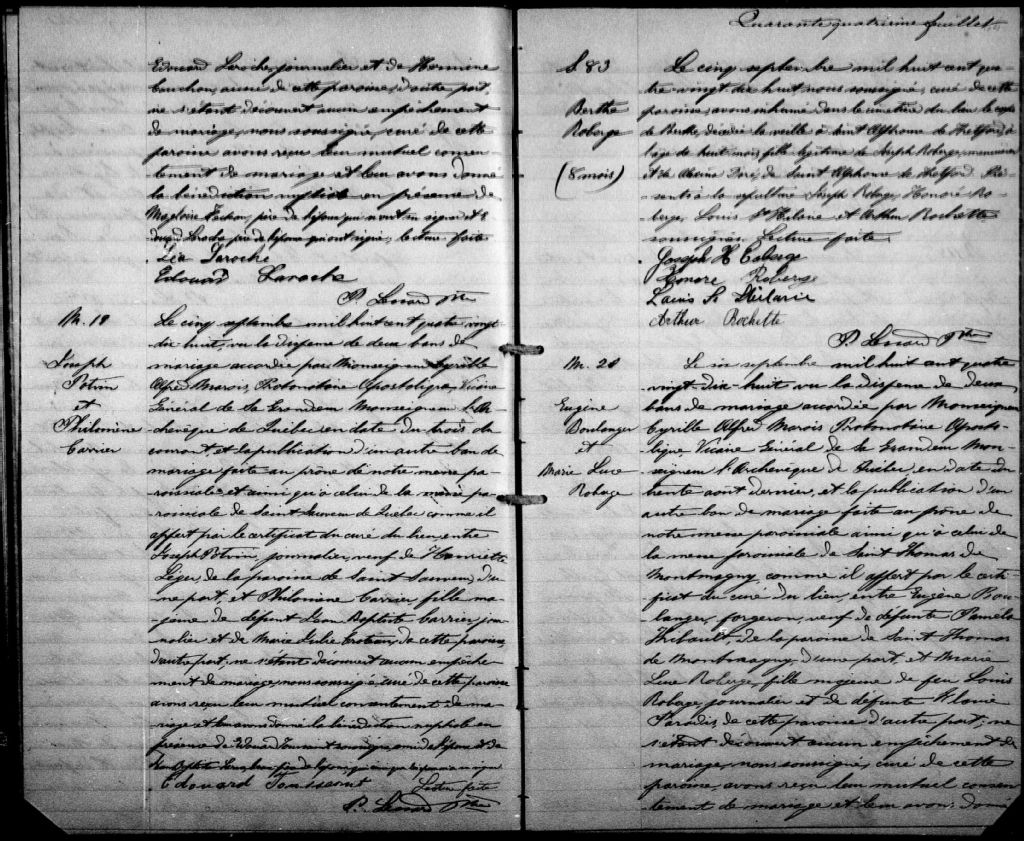 Edouard Laroche, journalier et de Hermine
Cauchon, aussi de cette paroisse, d'autre part,
ne s'étant découvert aucun empêchement
de mariage, nous soussigné, curé de cette
paroisse avons reçu leur mutuel consen-
tement de mariage et leur avons donné
la bénédiction nuptiale en présence de
père de l'époux qui n'a su signer et d'E
douard Laroche père de l'épouse qui ont signé. Lecture faite
Léa Laroche
Edouard Laroche
Ptre
M. 19
Joseph
Potvin
et
Philomène
Carrier
Le cinq septembre mil huit cent quatre vingt-
dix-huit, vu la dispense de deux bans de
mariage accordée par Monseigneur Cyrille
Alfred Marois, Protonotaire Apostolique, Vicaire
Général de Sa Grandeur Monseigneur l'Ar-
chevêque de Québec en date du trois du
courant et la publication d'un autre ban de
mariage faite au prône de notre messe pa-
roissiale et ainsi qu'à celui de la messe pa-
roissiale de Saint Sauveur de Québec comme il
appert par le certificat du curé du lieu, entre
Joseph Potvin, journalier, veuf de Henriette
Léger, de la paroisse de Saint Sauveur, d'u
ne part, et Philomène Carrier, fille ma-
jeure de défunt Jean Baptiste Carrier, jour-
nalier et de Marie Julie de cette paroisse,
d'autre part, ne s'étant découvert aucun empêche-
ment de mariage, nous soussigné, curé de cette paroisse
avons reçu leur mutuel consentement de ma-
riage et leur avons donné la bénédiction nuptiale en
présence de Edouard Toussaint soussigné, ami de l'époux et de
Jean Baptiste
Edouard Toussaint Lecture faite
Ptre
Quarante quatrième feuillet
S 83
Berthe
Roberge
(8 mois)
Le cinq septembre mil huit cent qua
tre vingt dix huit, nous soussigné, curé de cette
paroisse, avons inhumé dans le cimetière du lieu le corps
de Berthe, décédée la veille à Saint Alphonse de Thetford, à
l'âge de huit mois, fille légitime de Joseph Roberge,
et de de Saint Alphonse de Thetford. Pré
sents à la sépulture Joseph Roberge, Honoré Ro
berge, Louis St Hilaire et Arthur Rochette
soussignés. Lecture faite.
Joseph H Roberge
Honoré Roberge
Louis St Hilaire
Arthur Rochette
Ptre
M. 20
Eugène
Boulanger
et
Marie Luce
Roberge
Le six septembre mil huit cent quatre
vingt-dix-huit vu la dispense de deux
bans de mariage accordée par Monseigneur
Cyrille Alfred Marois Protonotaire Aposto-
lique, Vicaire Général de Sa Grandeur Mon-
seigneur l'Archevêque de Québec, en date du
trente août dernier, et la publication d'un
autre ban de mariage faite au prône de
notre messe paroissiale ainsi qu'à celui de
la messe paroissiale de Saint Thomas de
Montmagny, comme il appert par le certi-
ficat du curé du lieu, entre Eugène Bou-
langer, forgeron, veuf de défunte Paméla
Thibault, de la paroisse de Saint Thomas
de Montmagny, d'une part, et Marie
Luce Roberge, fille majeure de feu Louis
Roberge, journalier et de défunte
Paradis de cette paroisse d'autre part; ne
s'étant découvert aucun empêchement de
mariage, nous soussigné, curé de cette
paroisse, avons reçu leur mutuel consen
tement de mariage et leur avons donné